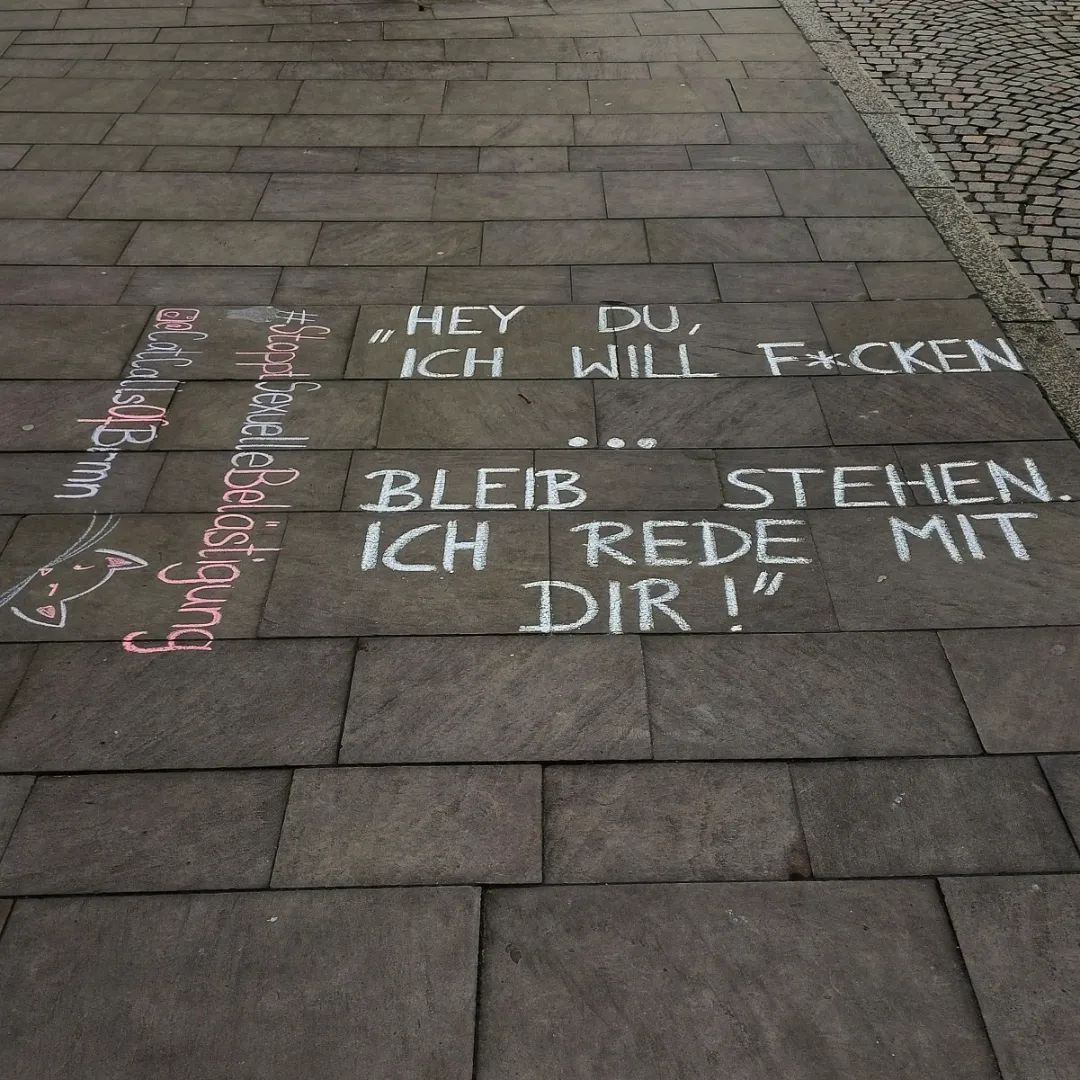 „HEY DU,
ICH WILL F*CKEN
...
BLEIB STEHEN.
ICH REDE MIT
DIR!"
#StopptSexuelleBelästigung
@CatCallsOfBrmn